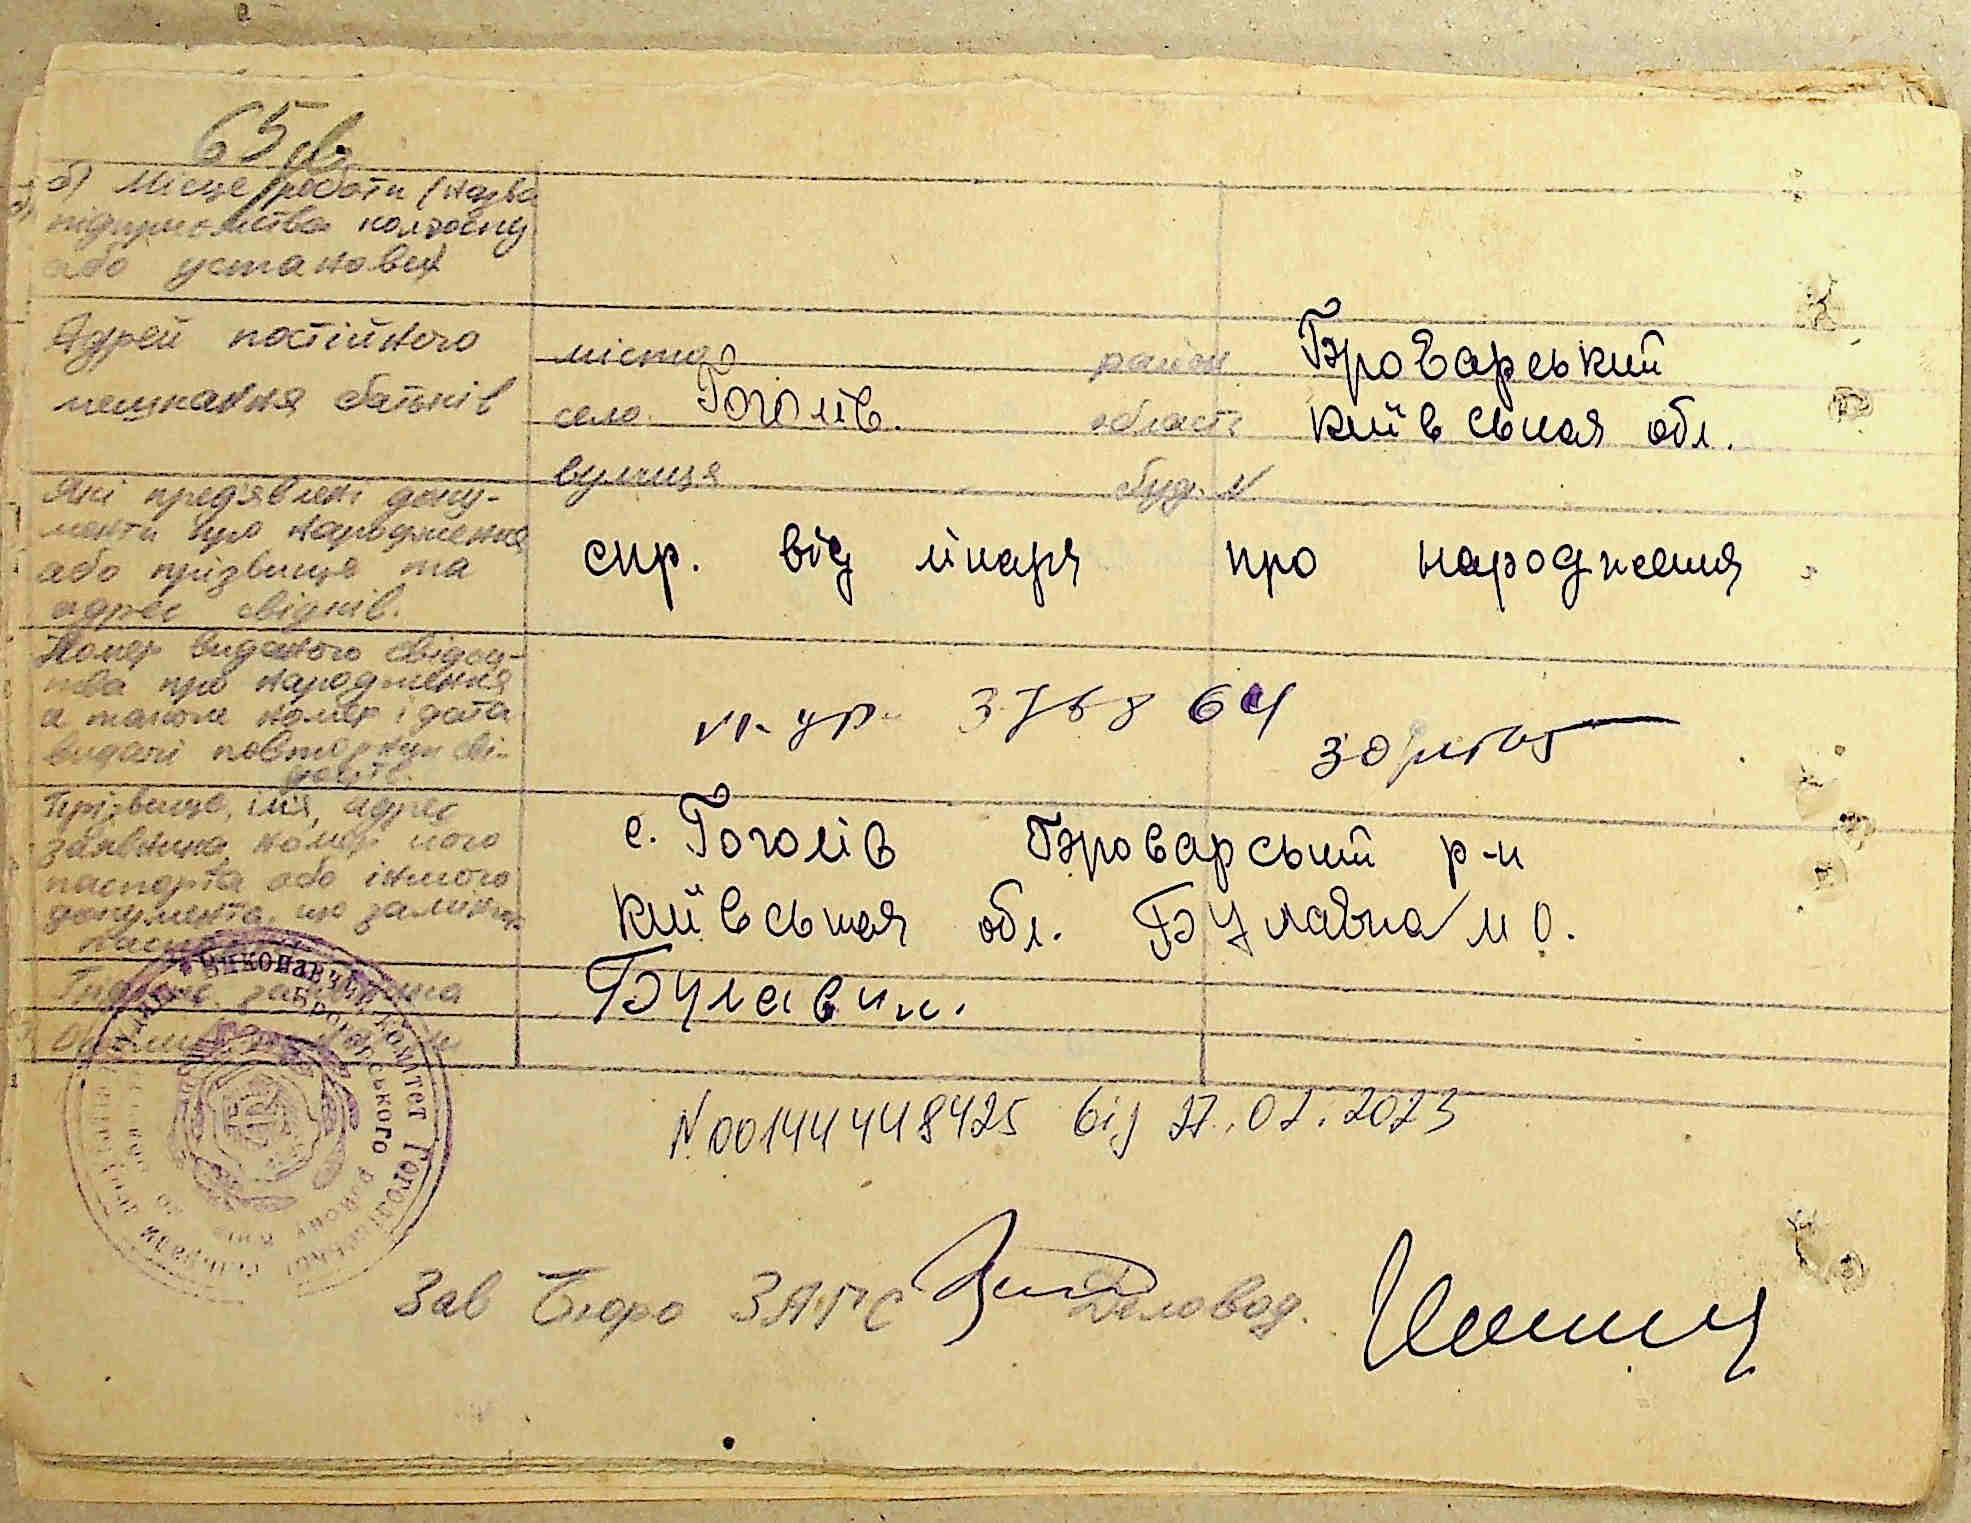 65 зв.
б) Місце роботи (назва
підприємства колгоспу
або установи)
Адрей постійного
мешкання батьків
місто
район Броварський
село Гоголів.
область Київськая обл.
вулиця
буд. N
Які пред'явлені доку-
менти про народження
або прізвище та
адрес свідків.
спр. від лікаря про народження
Номер виданого свідоц-
тва про народження
а також номер і дата
видачі повторних сві-
доцтв.
376864
30/
Прізвище, ім'я, адрес
заявника номер його
паспорта або іншого
документа, що замінює
с. Гоголів Броварський р-н
Київськая обл. Булавка М О.
заявника
Булавин.
Виконавчий комітет Гоголівської
Броварського району
N00144448425 від 27.02.2023
Зав Бюро ЗАГС
Деловод.